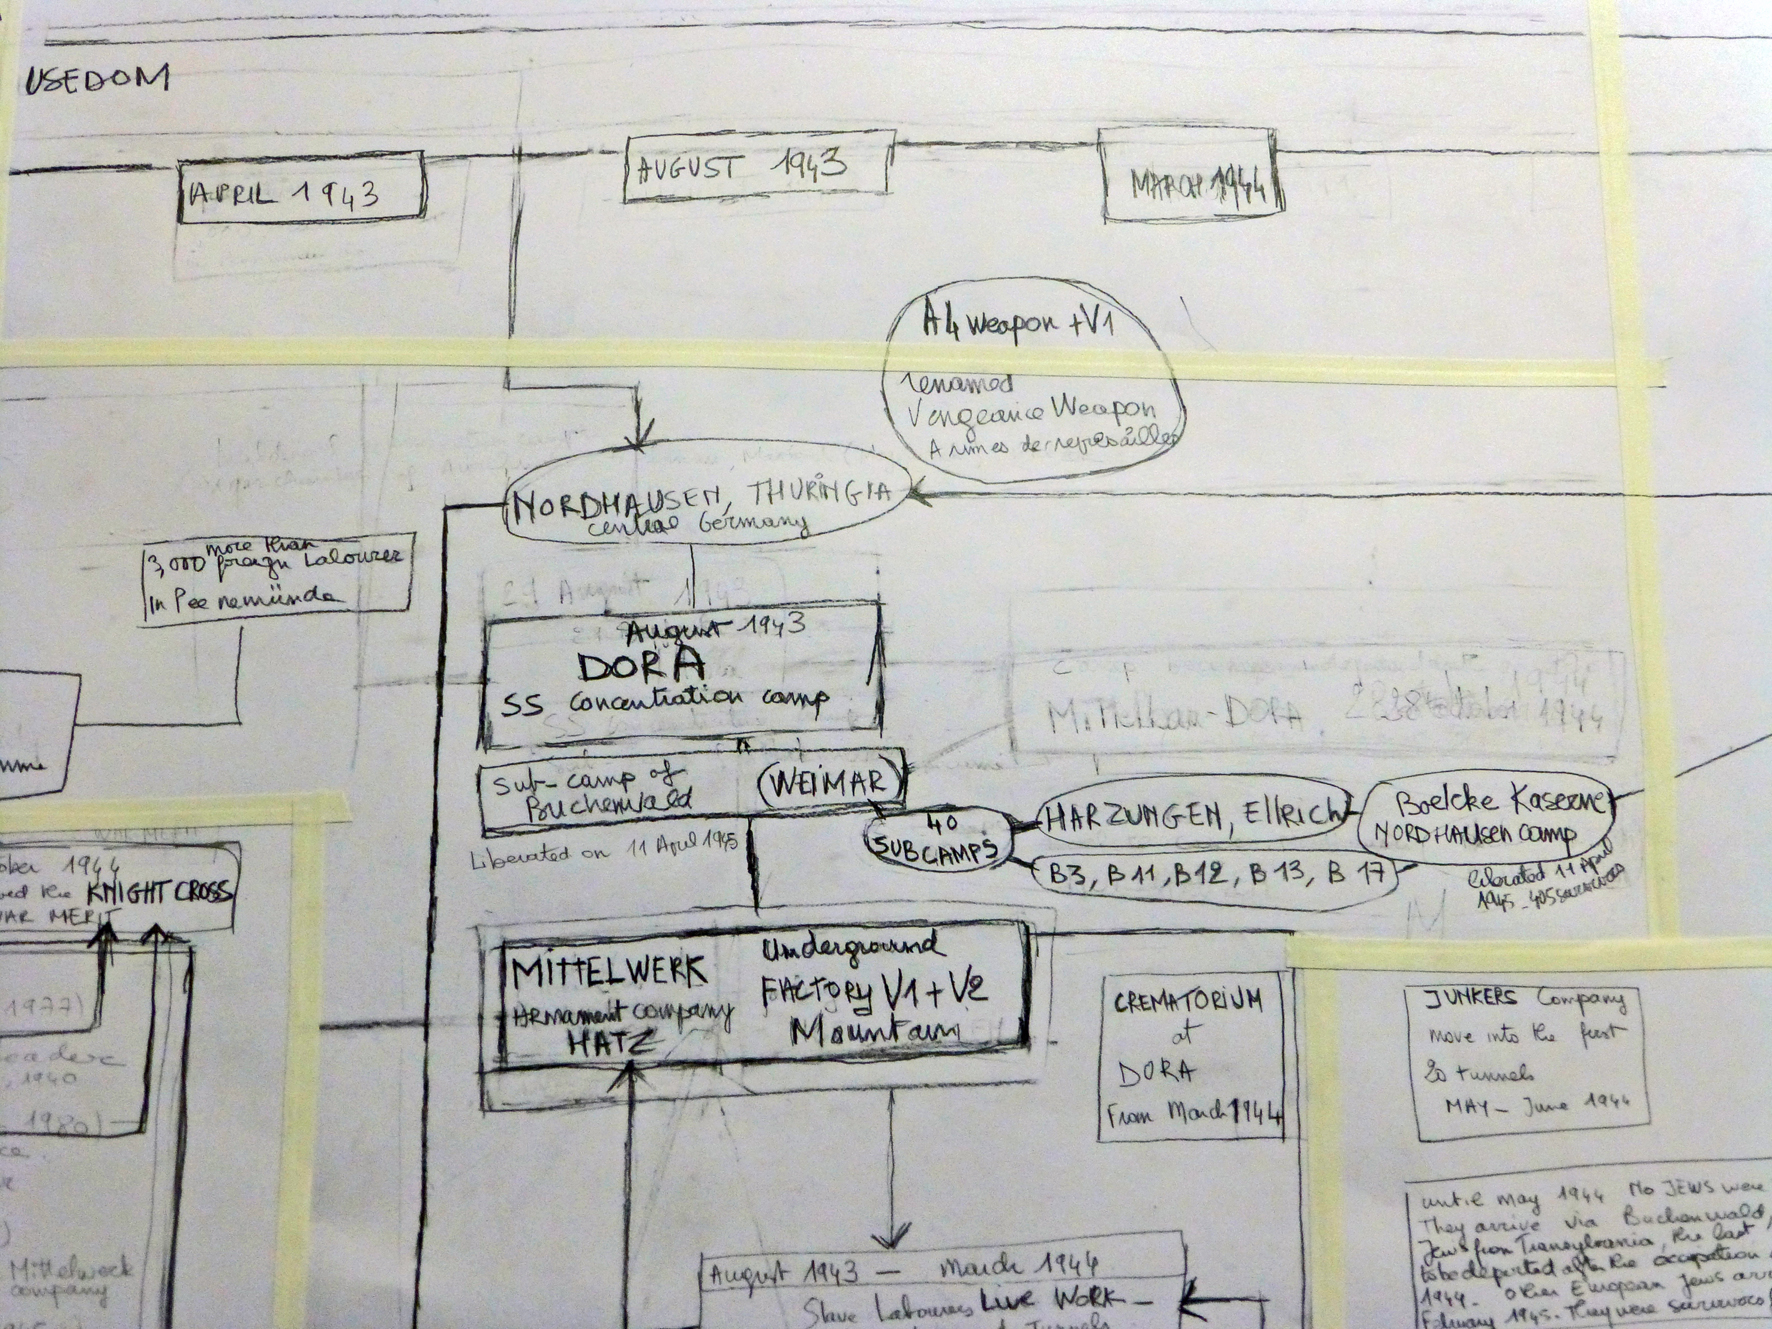 USEDOM
APRIL 1943
AUGUST 1943
MARCH 1944
A4 Weapon + V1
renamed
Vengeance Weapon
Armes de représailles
NORDHAUSEN, THURINGIA
central Germany
more than
3,000 foreign Labourer
in Peenemünde
August 1943
DORA
SS concentration camp
Mittelbau-DORA 28 1944
Sub-camp of
Buchenwald
WEIMAR
Liberated on 11 April 1945
40
SUBCAMPS
HARZUNGEN, Ellrich
Boelcke Kaserne
NORDHAUSEN camp
B3, B11, B12, B13, B17
liberated 11 April
1945 - 405 survivors
ober 1944
ved the KNIGHT CROSS
WAR MERIT
1977)
1940
1980)
Mittelwerk
company
MITTELWERK
ARmament company
HATZ
Underground
FACTORY V1 + V2
Mountain
CREMATORIUM
at
DORA
From March 1944
JUNKERS Company
move into the first
20 tunnels
MAY - June 1944
August 1943 - March 1944
Slave Labourers LIVE WORK -
Tunnels
until May 1944 No JEWS were
They arrive via Buchenwald,
Jews from Transylvania, the last
to be deported after the occupation
1944. Other European Jews
February 1945. They were survivors